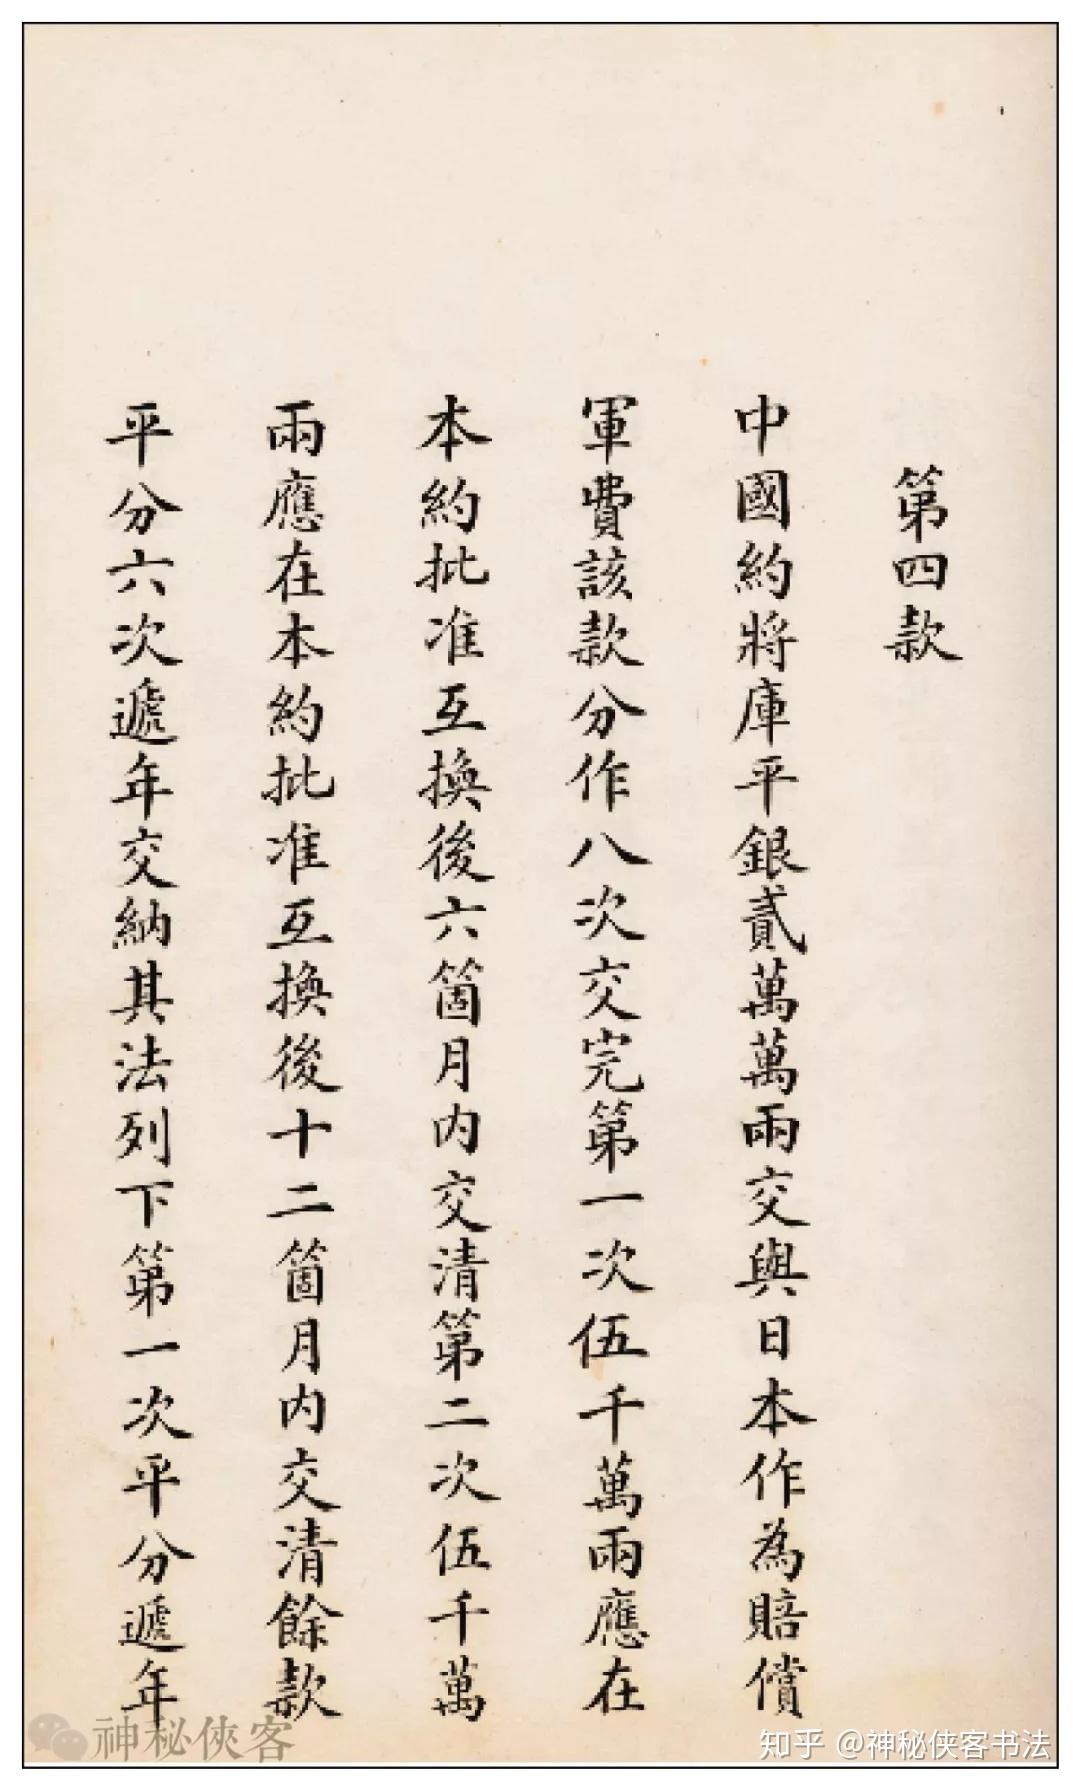 第四款
中國約將庫平銀貳萬萬兩交與日本作為賠償
軍費該款分作八次交完第一次伍千萬兩應在
本約批准互換後六箇月內交清第二次伍千萬
兩應在本約批准互換後十二箇月內交清餘款
平分六次遞年交納其法列下第一次平分遞年
神秘俠客
知乎 @神秘侠客书法